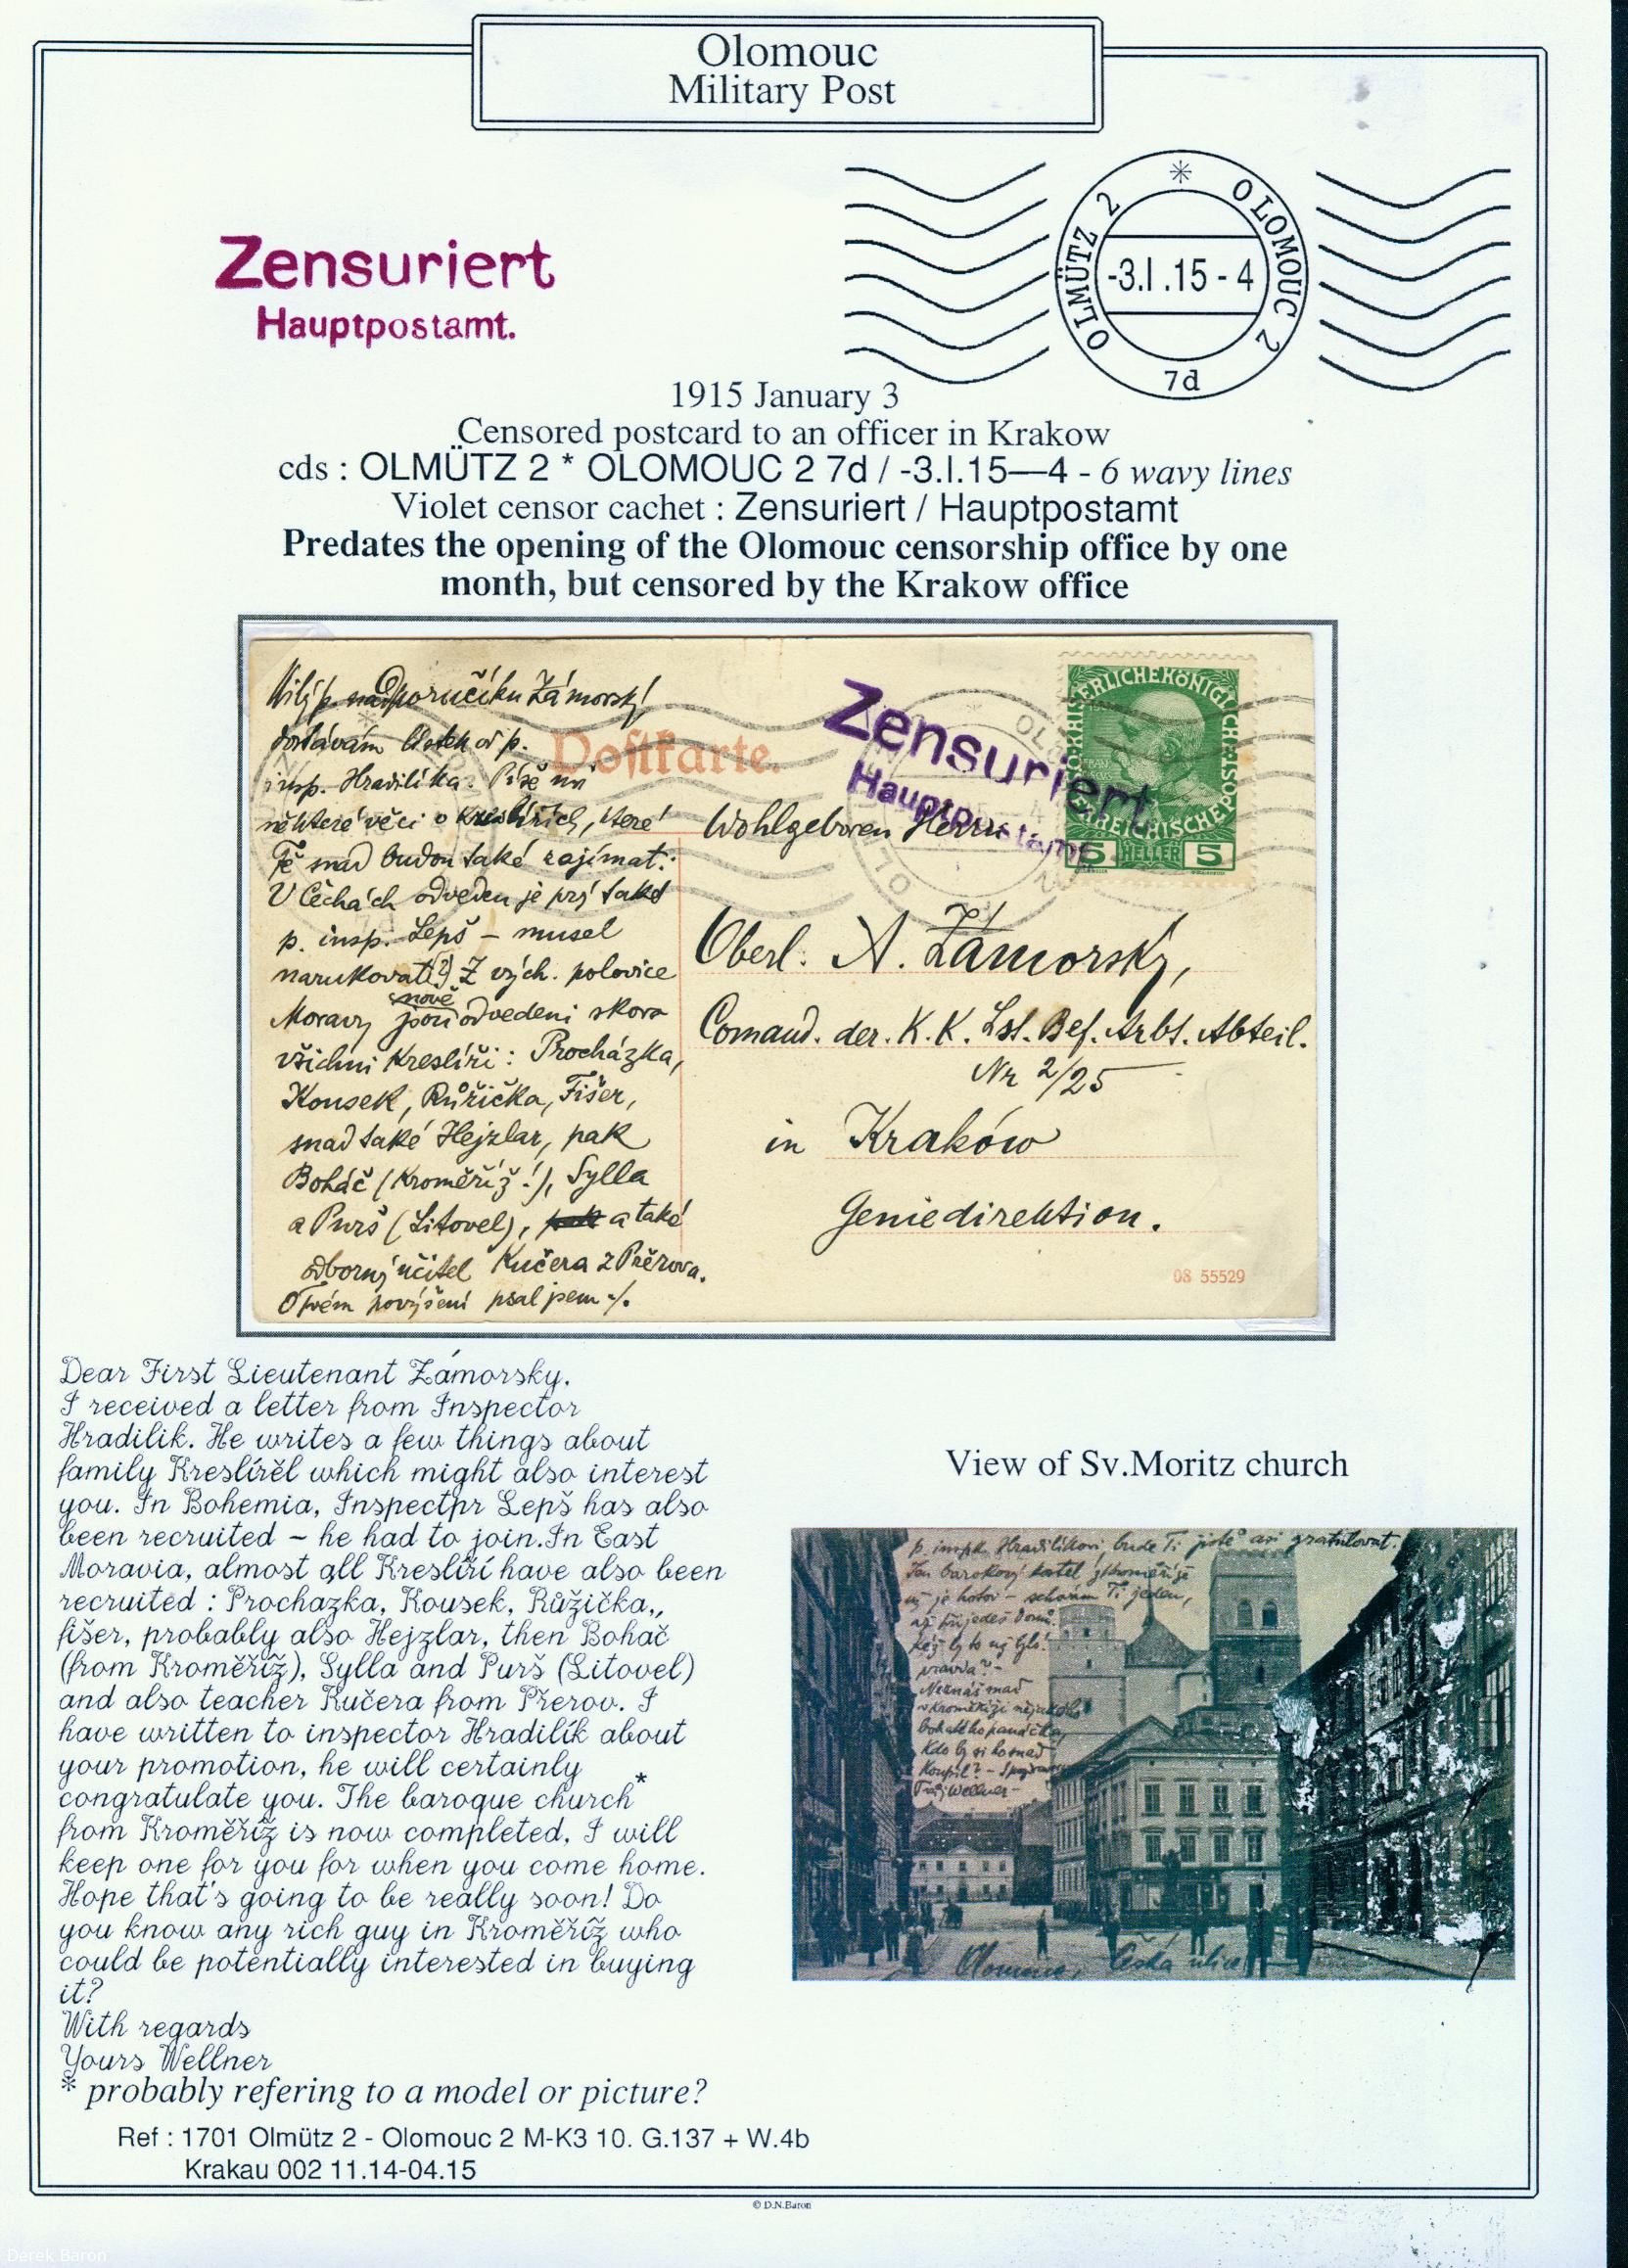 Olomouc
Military Post
Zensuriert
Hauptpostamt.
OLMÜTZ 2 * OLOMOUC 2
-3.I.15-4
7d
1915 January 3
Censored postcard to an officer in Krakow
cds : OLMÜTZ 2 * OLOMOUC 2 7d / -3.I.15—4 - 6 wavy lines
Violet censor cachet : Zensuriert / Hauptpostamt
Predates the opening of the Olomouc censorship office by one
month, but censored by the Krakow office
Milý p. nadporučíku Zámorský
dostávám lístek od p.
insp. Hradilíka. Píše mi
některé věci o kreslířích, které
Tě snad budou také zajímat:
V Čechách odveden je prý také
p. insp. Lepš – musel
narukovati(?) Z vých. polovice
nově
Moravy jsou odvedeni skoro
všichni kreslíři: Procházka,
Kousek, Růžička, Fišer,
snad také Hejzlar, pak
Boháč (Kroměříž!), Sylla
a Purš (Litovel), a také
odborný učitel Kučera z Přerova.
O Tvém povýšení psal jsem ·/.
Postkarte.
Zensuriert
Hauptpostamt.
KAISERLICHEKÖNIGLICHE
ÖSTERREICHISCHE POST
5 HELLER 5
Wohlgeboren Herrn
Oberl. A. Zámorský,
Comand. der. K.K. Lst. Bef. Arbt. Abteil.
Nr 2/25
in Kraków
Geniedirektion.
08 55529
Dear First Lieutenant Zámorsky,
I received a letter from Inspector
Hradilik. He writes a few things about
family Kreslírěl which might also interest
you. In Bohemia, Inspectpr Lepš has also
been recruited – he had to join.In East
Moravia, almost all Kreslíří have also been
recruited : Prochazka, Kousek, Růžička,,
fišer, probably also Hejzlar, then Boháč
(from Kroměříž), Sylla and Purš (Litovel)
and also teacher Kučera from Přerov. I
have written to inspector Hradilík about
your promotion, he will certainly
congratulate you. The baroque church*
from Kroměříž is now completed, I will
keep one for you for when you come home.
Hope that's going to be really soon! Do
you know any rich guy in Kroměříž who
could be potentially interested in buying
it?
With regards
Yours Wellner
* probably refering to a model or picture?
View of Sv.Moritz church
p. insp. Hradilíkovi, bude Ti jistě asi gratulovat.
Ten barokový kostel z Kroměříže
už je hotov – schovám Ti jeden,
až přijedeš domů.
Kéž by to už bylo!
pravda? –
Neznáš snad
v Kroměříži nějakého
bohatého panáčka,
kdo by si ho snad
koupil? –
Tvůj Wellner –
Olomouc, Česká ulice
Ref : 1701 Olmütz 2 - Olomouc 2 M-K3 10. G.137 + W.4b
Krakau 002 11.14-04.15
© D.N.Baron
Derek Baron